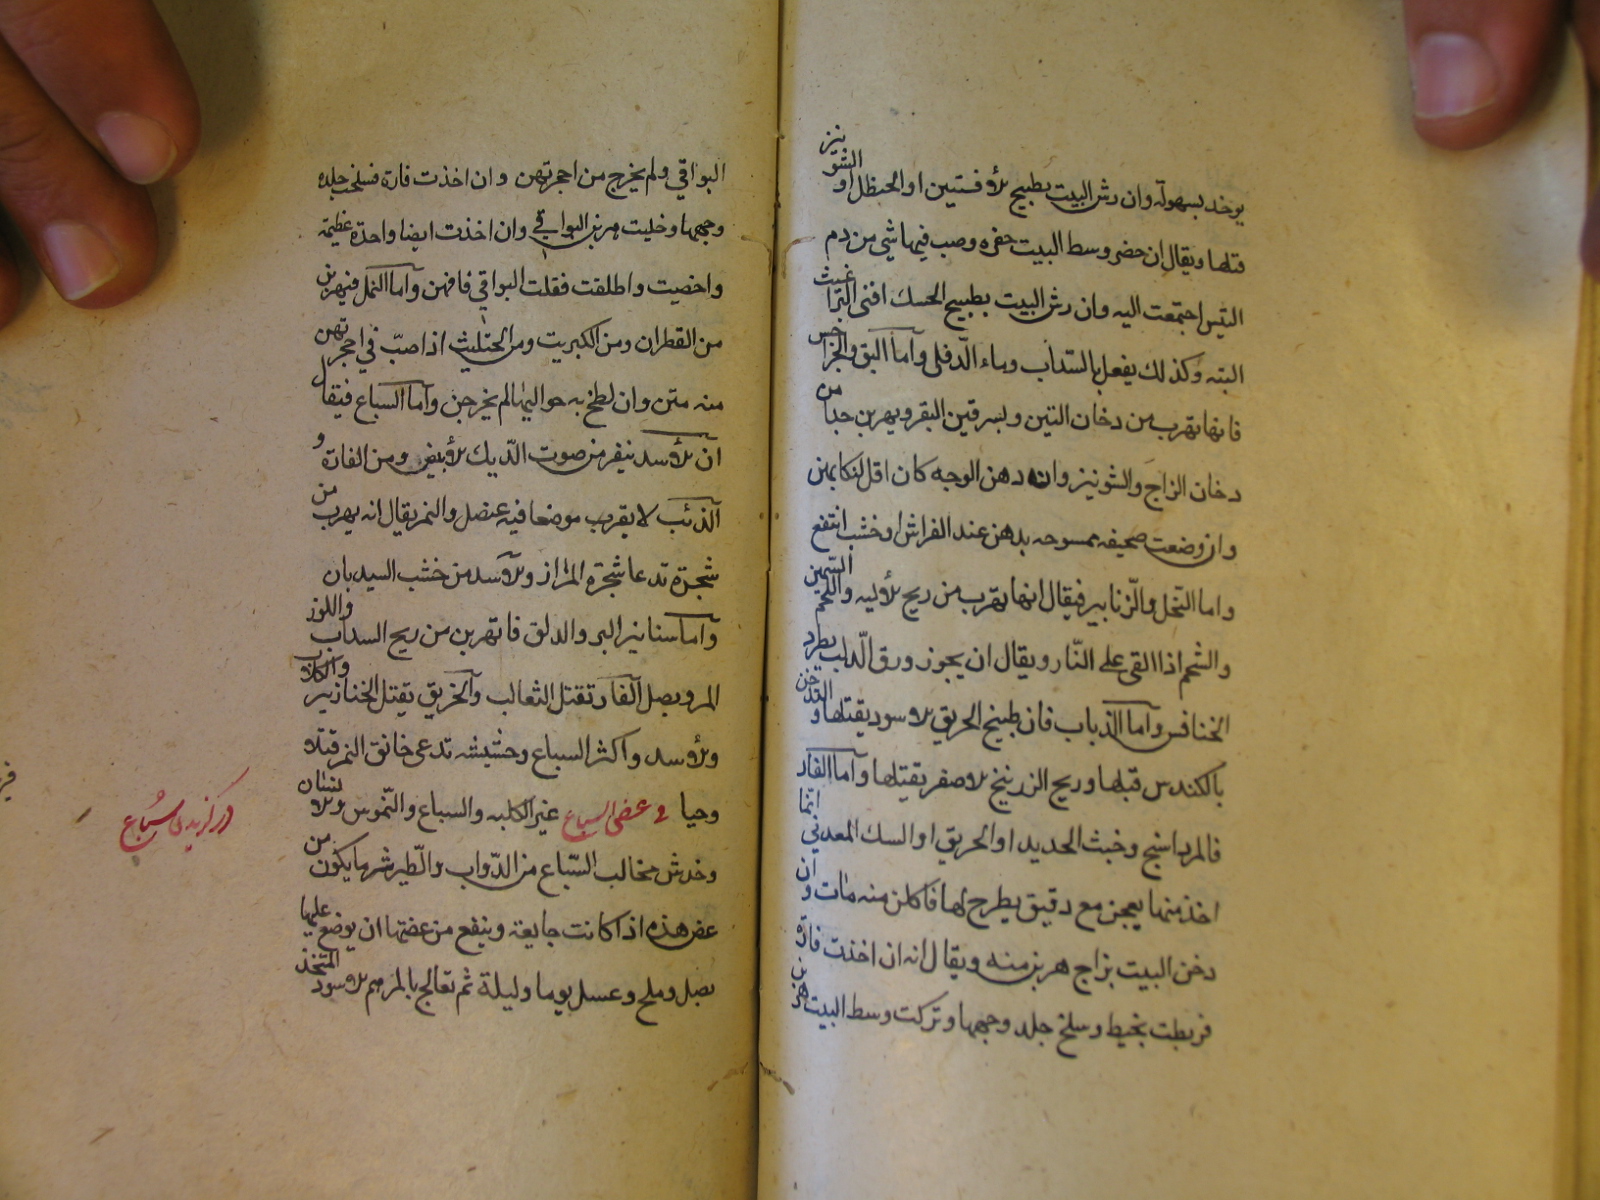 يوخد بسهولة وان رش البيت بطبيخ الافسنتين او الحنظل او الشونيز
قتلها ويقال ان حضر وسط البيت حفره وصب فيها شي من دم
التيس اجتمعت اليه وان رش البيت بطبيخ الحسك افنى البراغيث
البته وكذلك يفعل بالسداب وماء الدفلى واما البق والجرجس
فانها تهرب من دخان التين وبسرقين البقر ويهربن جدا من
دخان الزاج والشونيز وان دهن الوجه كان اقل لنكايتهن
وان وضعت صحيفه ممسوحه بدهن عند الفراش او خشب انتفع
واما النحل والزنابير فيقال انها تهرب من ريح الاليه واللحم السمين
والشحم اذا القى على النار ويقال ان يجوز ورق الدلب يطرد
الخنافس واما الذباب فان طبيخ الخريق الاسود يقتلها و التدخن
بالكندس قتلها وريح الزرنيخ الاصفر يقتلها واما الفار
فالمرداسنج وخبث الحديد او الخريق او السك المعدني ايما
اخذ منها يعجن مع دقيق يطرح لها فاكلن منه مات و ان
دخن البيت بزاج هربن منه ويقال انه ان اخذت فارة
فربطت بخيط وسلخ جلد وجهها وتركت وسط البيت هربن
البواقي ولم يخرج من اجحرتهن وان اخذت فارة فسلخت جلده
وجهها وخليت هربن البواقي وان اخذت ايضا واحدة عظيمة
واخصيت واطلقت فقلت البواقي فافهن واما النمل فيهربن
من القطران ومن الكبريت ومن الحتليث اذا صب في اجحرتهن
منه متن وان لطخ به حواليها لم يخرجن واما السباع فيقال
ان الاسد ينفر من صوت الديك الابيض ومن الفارة و
الذئب لا يقرب موضعا فيه عنصل والنمر يقال انه يهرب من
شجرة تدعا شجرة المزاز والاسد من خشب السيدبان
واما سنانير البر والدلق فانهربن من ريح السداب واللوز
المر وبصل الفار وتقتل الثعالب والخريق يقتل الخنازير والكلاب
والاسد واكثر السباع وحشيشه تدعى خانق النمر قتلا
وحيا في عض السباع غير الكلبه والسباع والنموس والانسان
وخدش مخالب السباع من الدواب والطير شر ما يكون من
عض هذه اذا كانت جايعة وينفع من عضتها ان يوضع عليها
بصل وملح وعسل يوما وليلة ثم تعالج بالمرهم الاسود المتخذ
در كزيدن سباع